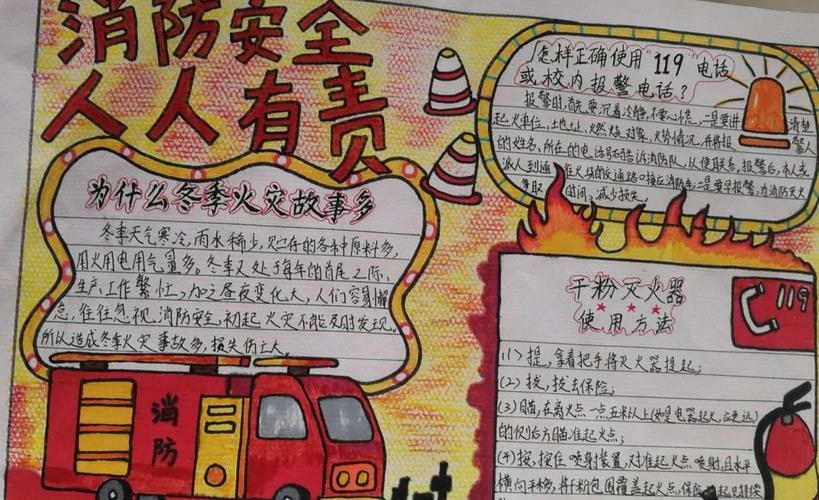 消防安全
人人有责
为什么冬季火灾故事多
冬季天气寒冷,雨水稀少,贮存的各种原料多,
用火用电用气量多。冬季又处于每年的首尾之际,
生产、工作繁忙,加之昼夜变化大,人们容易懈
怠,往往忽视消防安全,初起火灾不能及时发现,
所以造成冬季火灾事故多,损失伤亡大。
消
防
怎样正确使用"119"电话
或校内报警电话?
报警时,首先要沉着冷静,不要心慌,一是要讲清楚
起火单位,地址,燃烧对象,火势情况,并将报警人
的姓名,所在的电话号码告诉消防队,以便联系,报警后,本人或
派人到通往火场的交通路口接应消防车;二是要早报警,为消防灭火
争取时间,减少损失。
干粉灭火器
使用方法
119
(1)提,拿着把手将灭火器提起;
(2)拔,拔去保险;
(3)瞄,在离火点一点五米以上(如是电器起火,应更远)
的侧后方瞄准起火点;
(4)按,按住喷射装置,对准起火点喷射,且水平
横向移动,将干粉包围覆盖起火点,保险起见持续